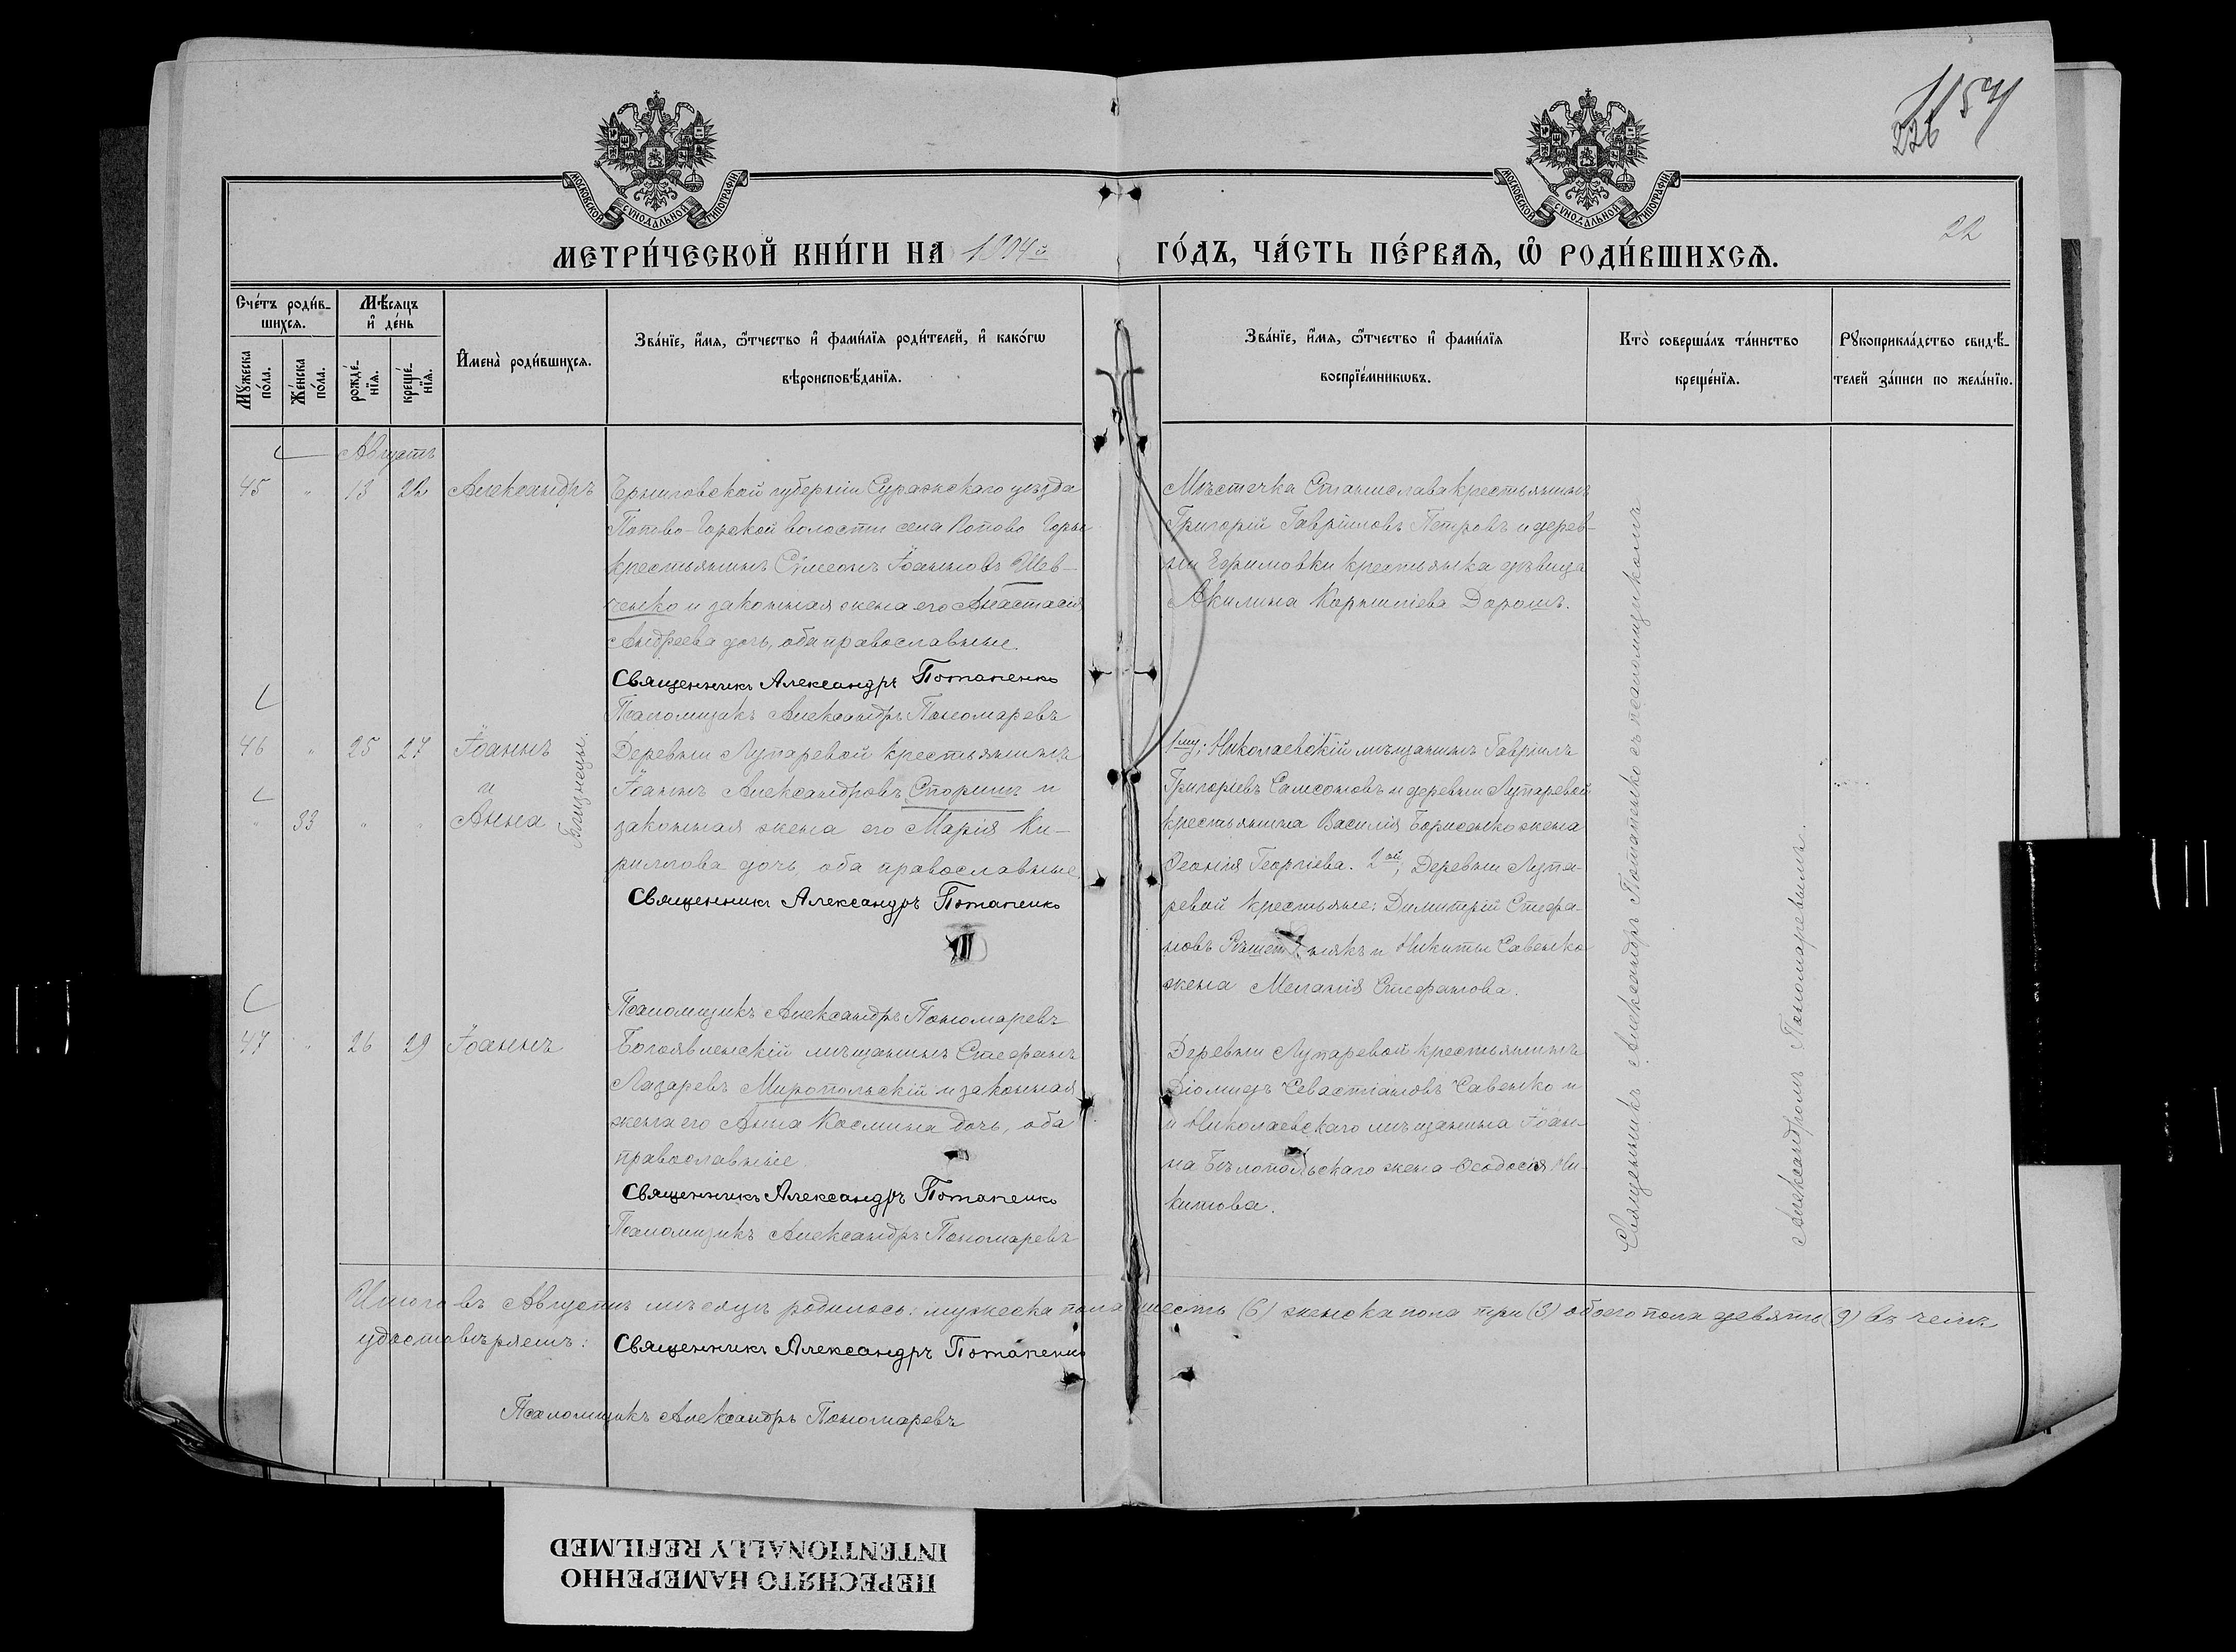 1154
226
22
МОСКОВСКОЙ СѴНОДАЛЬНОЙ ТИПОГРАФІИ
МОСКОВСКОЙ СѴНОДАЛЬНОЙ ТИПОГРАФІИ
МЕТРИ́ЧЕСКОЙ КНИ́ГИ НА 1904й ГО́ДЪ, ЧА́СТЬ ПЕ́РВАЯ, Ѽ РОДИ́ВШИХСѦ.
Сче́тъ роди́в-
шихсѧ.
Мꙋ́жеска
по́ла.
Же́нска
по́ла.
Мѣ́сѧцъ
и҆ де́нь
рожде́-
нїѧ.
креще́-
нїѧ.
И҆мена̀ роди́вшихсѧ.
Зва́нїе, и҆́мѧ, ѻ҆́тчество и҆ фами́лїѧ роди́телей, и҆ како́гѡ
вѣроисповѣ́данїѧ.
Зва́нїе, и҆́мѧ, ѻ҆́тчество и҆ фами́лїѧ
воспрїе́мникѡвъ.
Кто̀ соверша́лъ та́инство
креще́нїѧ.
Рꙋкоприкла́дство свидѣ́-
телей за́писи по жела́нїю.
Августъ
45 " 13 22 Александръ
Черниговской губерніи Суражскаго уѣзда
Попово-Горской волости села Попово Горы
крестьянинъ Сѵмеонъ Іоанновъ Шев-
ченко и законная жена его Анастасія
Андреева дочь, оба православные.
Священникъ Александръ Потапенко
Псаломщикъ Александръ Пономаревъ
Мѣстечка Станислава крестьянинъ
Григорій Гавріиловъ Петровъ и дерев-
ни Ефимовки крестьянка дѣвица
Акилина Корниліева Дорошъ.
46 " 25 27 Іоаннъ
и
" 33 " " Анна
Близнецы.
Деревни Лупаревой крестьянинъ
Іоаннъ Александровъ Споришъ и
законная жена его Марія Ки-
риллова дочь, оба православные.
Священникъ Александръ Потапенко
Псаломщикъ Александръ Пономаревъ
1му; Николаевскій мѣщанинъ Гавріилъ
Григорьевъ Самсоновъ и деревни Лупаревой
крестьянина Василія Борисенко жена
Ѳеонія Георгіева. 2ой; Деревни Лупа-
ревой крестьяне: Димитрій Стефа-
новъ и Никиты Савенко
жена Меланія Стефанова.
47 " 26 29 Іоаннъ
Богоявленскій мѣщанинъ Стефанъ
Лазаревъ Миропольскій и законная
жена его Анна Космина дочь, оба
православные.
Священникъ Александръ Потапенко
Псаломщикъ Александръ Пономаревъ
Деревни Лупаревой крестьянинъ
Діомидъ Севастіановъ Савенко и
и Николаевскаго мѣщанина Іоан-
на Бѣлопольскаго жена Ѳеодосія Ни-
китова.
Священникъ Александръ Потапенко съ псаломщикомъ
Александромъ Пономаревымъ.
Итого въ Августѣ мѣсяцѣ родилось: мужеска пола шесть (6) женска пола три (3) обоего пола девять (9) въ чемъ
удостовѣряемъ: Священникъ Александръ Потапенко
Псаломщикъ Александръ Пономаревъ
ПЕРЕСНЯТО НАМЕРЕННО
INTENTIONALLY REFILMED